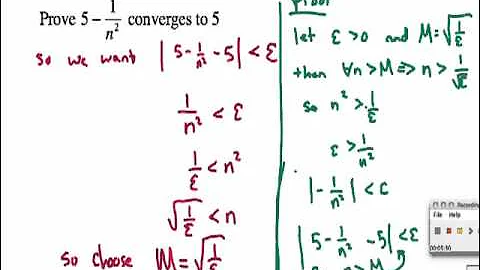 Prove 5 − 1/n² converges to 5
so we want | 5 - 1/n² - 5 | < ε
1/n² < ε
1/ε < n²
√(1/ε) < n
so choose M = √(1/ε)
proof
let ε > 0 and M = √(1/ε)
then ∀n > M ⇒ n > √(1/ε)
so n² > 1/ε
ε > 1/n²
| - 1/n² | < ε
| 5 - 1/n² - 5 | < ε
∀n > M
Recording
File Help